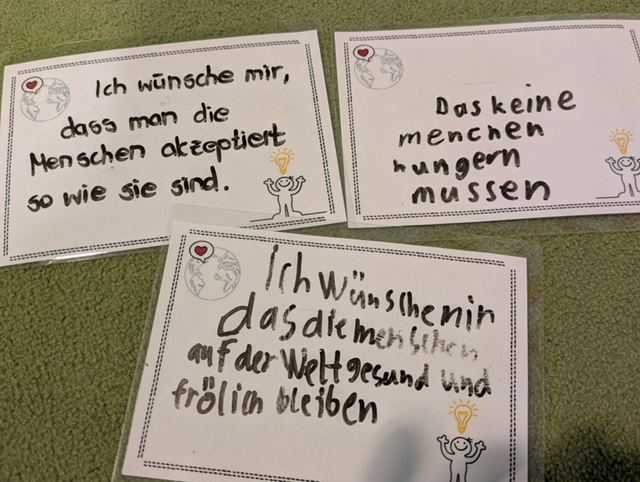 Ich wünsche mir,
dass man die
Menschen akzeptiert
so wie sie sind.
Das keine
menchen
hungern
mussen
Ich wünsche mir
das die menschen
auf der Welt gesund und
frölich bleiben